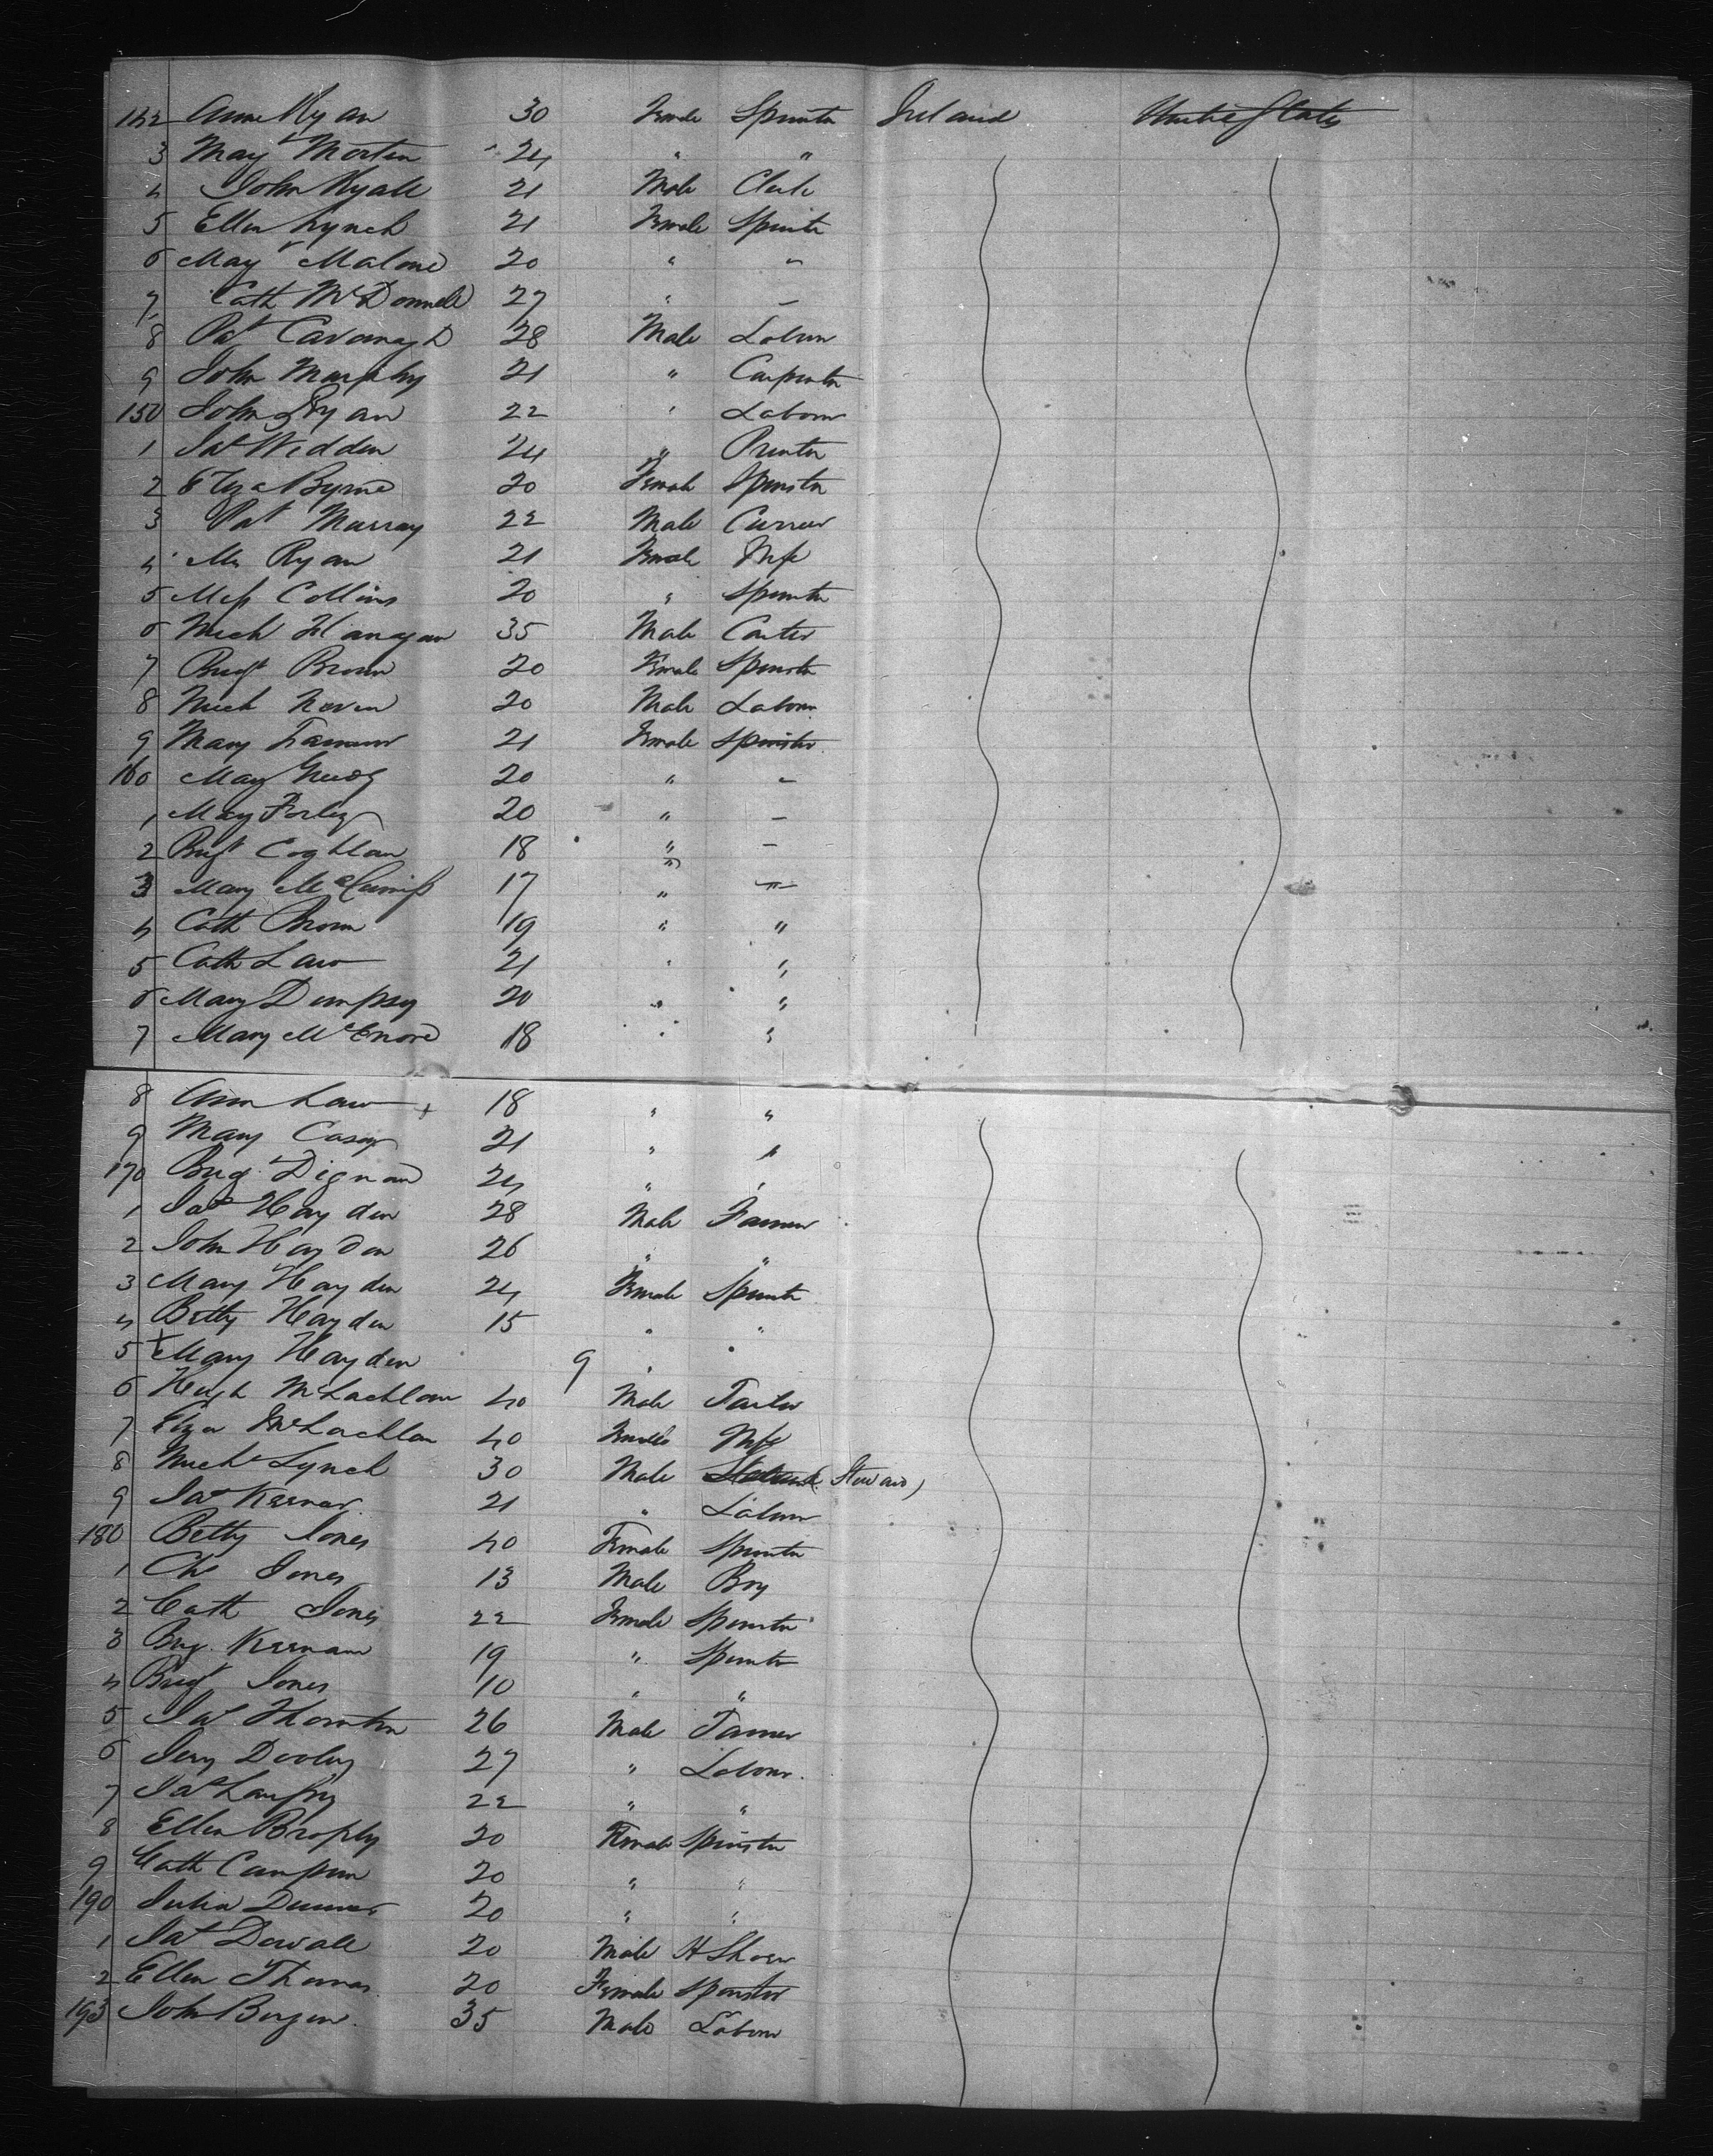 142 Anne Ryan 30 Female Spinster Ireland United States
3 Mary Morton 24 " "
4 John Ryall 21 Male Clerk
5 Ellen Lynch 21 Female Spinster
6 Mary Malone 20 " "
7 Cath McDonnell 27 " "
8 Pat Cavanagh 28 Male Labour
9 John Murphy 21 " Carpenter
150 John Ryan 22 " Labour
1 Jas Wedden 24 " Printer
2 Eliza Byrne 20 Female Spinster
3 Pat Murray 22 Male Currier
4 Mrs Ryan 21 Female Wife
5 Miss Collins 20 " Spinster
6 Mich Flanagan 35 Male Carter
7 Bridgt Brown 20 Female Spinster
8 Mich Neven 20 Male Labour
9 Mary 21 Female Spinster
160 Mary 20 " "
1 Mary Farley 20 " "
2 Brigt Coghlan 18 " "
3 Mary 17 " "
4 Cath Brown 19 " "
5 Cath Law 21 " "
6 Mary Dempsey 20 " "
7 Mary McEnroe 18 " "
8 Ann Law + 18 " "
9 Mary Casey 21 " "
170 Brig Dignan 24 " "
1 Jas Hayden 28 Male Farmer
2 John Hayden 26 " "
3 Mary Hayden 24 Female Spinster
4 Betty Hayden 15 " "
5 + Mary Hayden 9 " "
6 Hugh McLachlan 40 Male Tailor
7 Eliza McLachlan 40 Female Wife
8 Michl Lynch 30 Male (Steward)
9 Jas Keenan 21 " Labour
180 Betty Jones 40 Female Spinster
1 Chs Jones 13 Male Boy
2 Cath Jones 22 Female Spinster
3 Brig. Keenan 19 " Spinster
4 Brigt Jones 10 " "
5 Jas Thornton 26 Male Farmer
6 Jery Dooley 27 " Labour
7 Jas 22 " "
8 Ellen Brophy 20 Female Spinster
9 Cath Campion 20 " "
190 Julia 20 " "
1 Jas Dowall 20 Male H Shoer
2 Ellen Thomas 20 Female Spinster
193 John Bergen 35 Male Labour